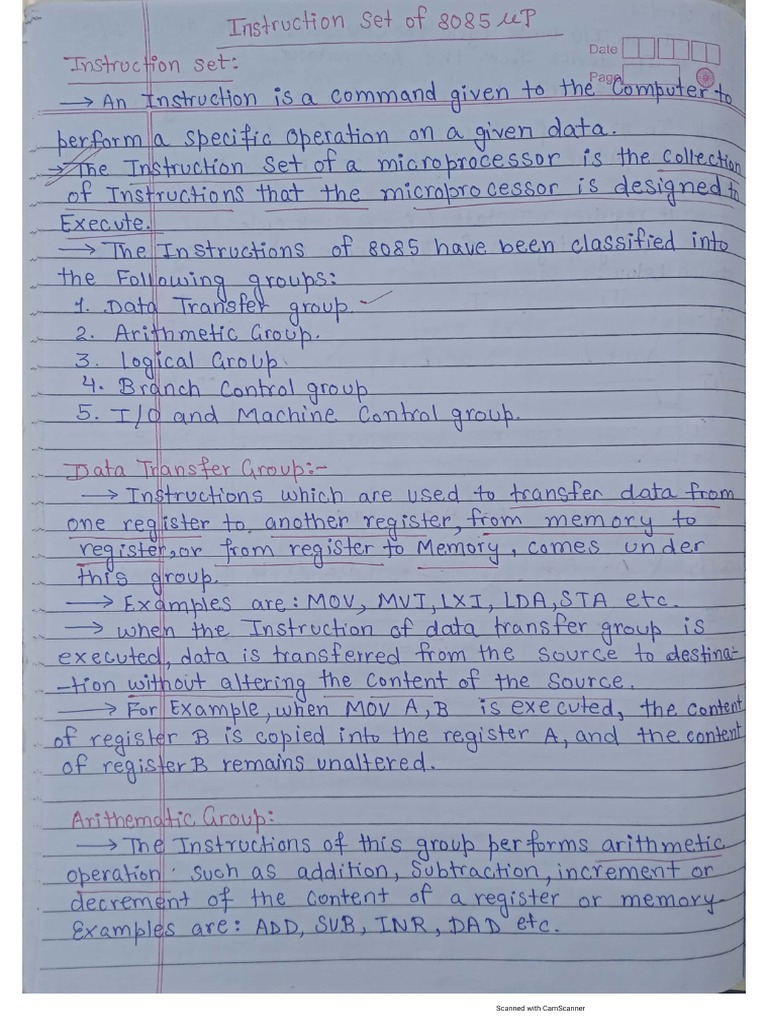 Instruction Set of 8085 μP
Date
Instruction set:
Page
→ An Instruction is a command given to the Computer to
perform a specific Operation on a given data.
→ The Instruction Set of a microprocessor is the collection
of Instructions that the microprocessor is designed to
Execute.
→ The Instructions of 8085 have been classified into
the Following groups:
1. Data Transfer group.
2. Arithmetic Group.
3. Logical Group.
4. Branch Control group
5. I/O and Machine Control group.
Data Transfer Group:-
→ Instructions which are used to transfer data from
one register to another register, from memory to
register, or from register to Memory, comes under
this group.
→ Examples are: MOV, MVI, LXI, LDA, STA etc.
→ when the Instruction of data transfer group is
executed, data is transferred from the source to destina-
-tion without altering the content of the source.
→ For Example, when MOV A, B is executed, the content
of register B is copied into the register A, and the content
of register B remains unaltered.
Arithematic Group:
→ The Instructions of this group performs arithmetic
operation. such as addition, subtraction, increment or
decrement of the content of a register or memory.
Examples are: ADD, SUB, INR, DAD etc.
Scanned with CamScanner